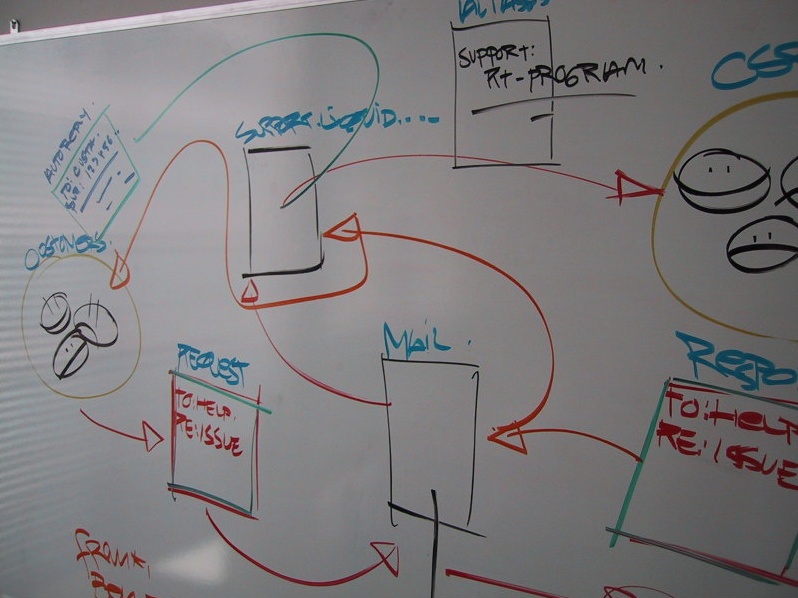 SUPPORT:
RT-PROGRAM.
CSS
AUTOREPLY.
TO: CUSTR.
SUPPORT.LIQUID....
CUSTOMERS.
MAIL.
REQUEST
TO:HELP.
RE:ISSUE
RESPO
TO:HELP
RE:ISSUE
FROM: